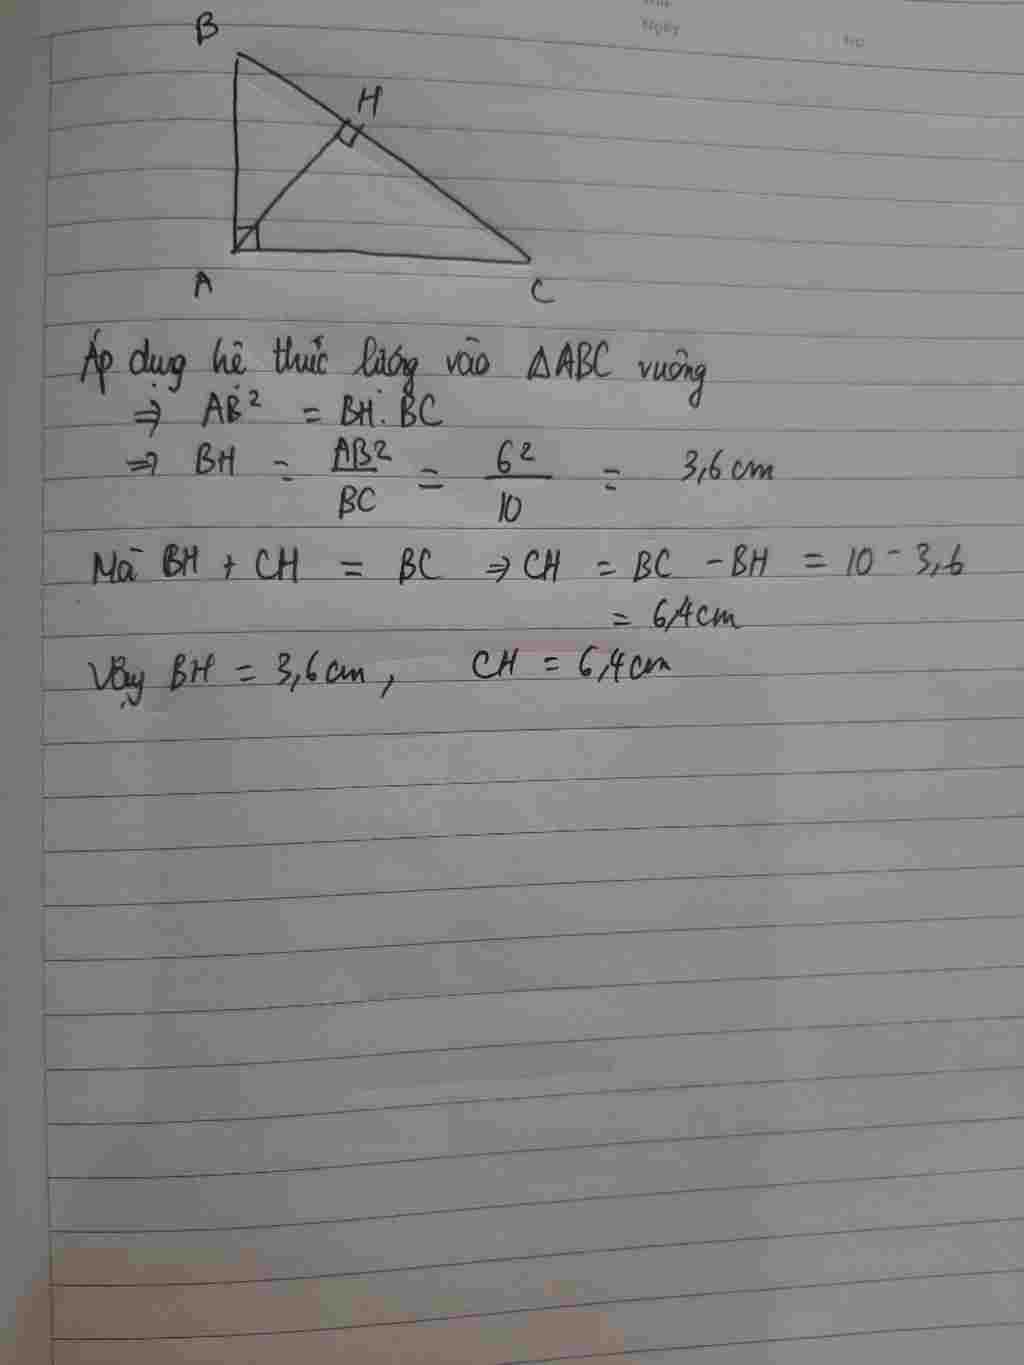 Ngày
No
B
H
A
C
Áp dụng hệ thức lượng vào ΔABC vuông
⇒ AB² = BH . BC
⇒ BH = AB²/BC = 6²/10 = 3,6 cm
Mà BH + CH = BC ⇒ CH = BC - BH = 10 - 3,6
= 6,4cm
Vậy BH = 3,6cm, CH = 6,4cm